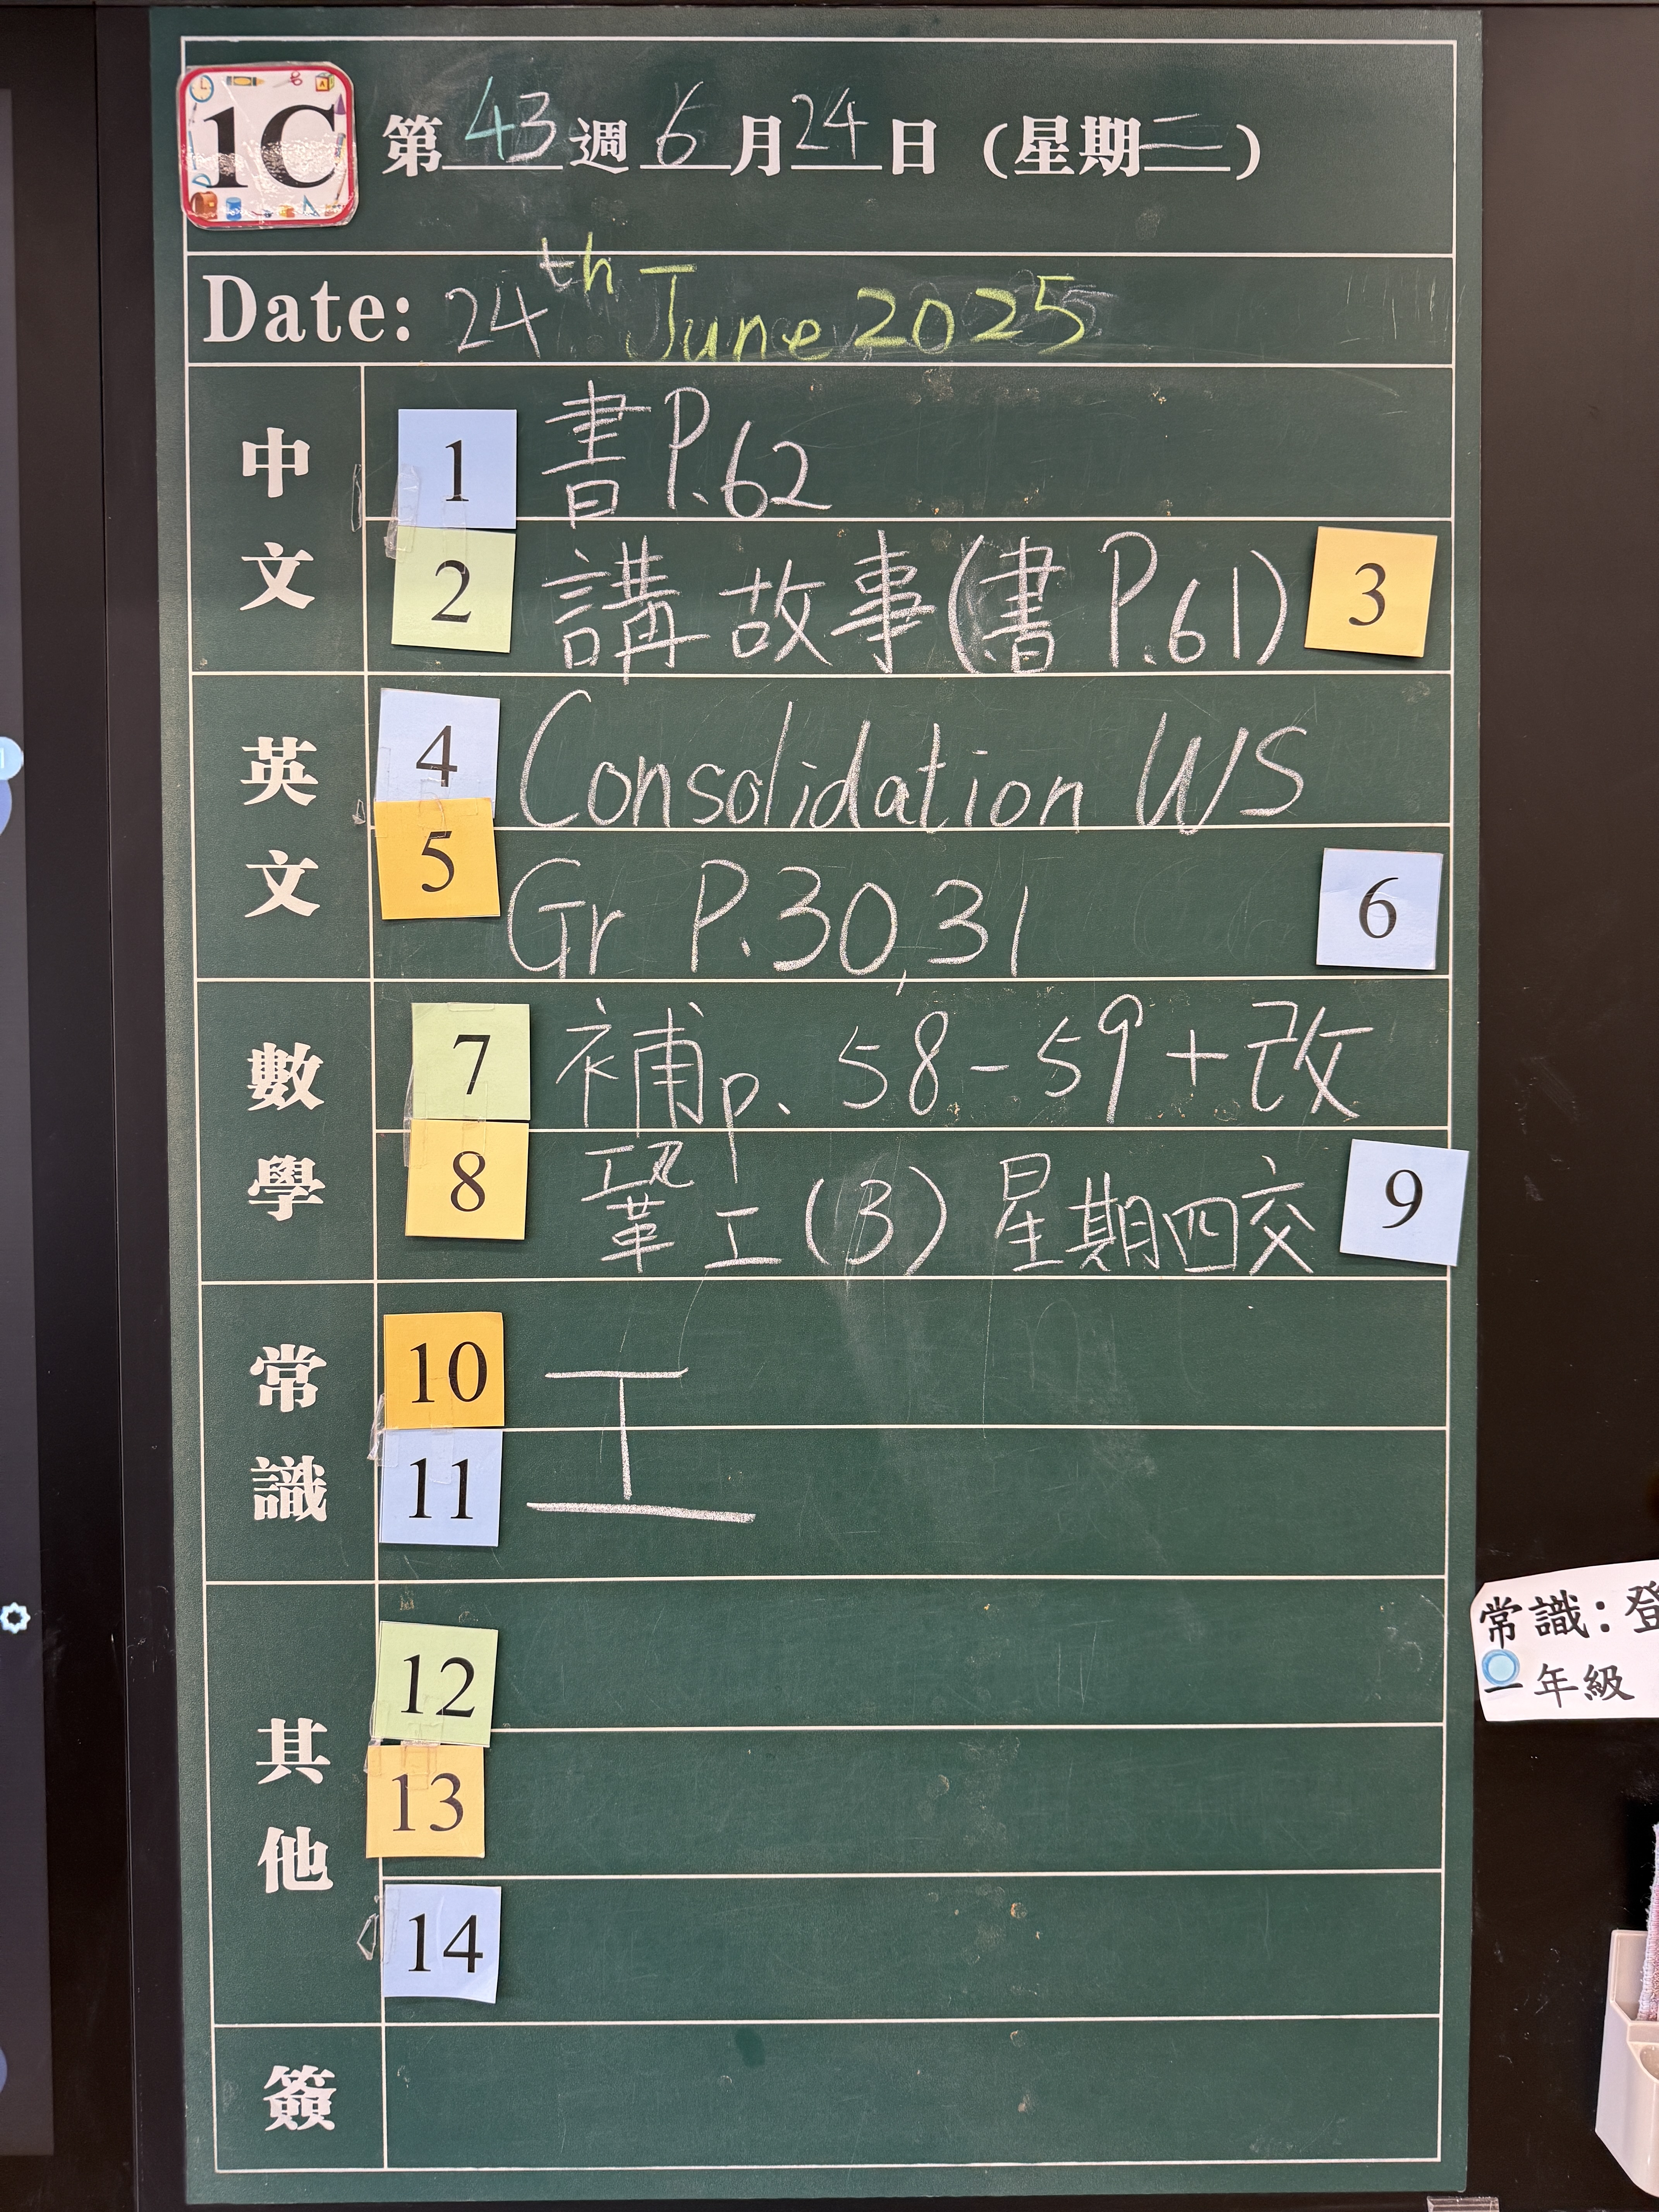 1C 第43週6月24日(星期二)
Date: 24th June 2025
中文
1 書P.62
2 講故事(書P.61) 3
英文
4 Consolidation WS
5 Gr P.30,31 6
數學
7 補p. 58-59+改
8 鞏工(3) 星期四交 9
常識
10 工
11
其他
12
13
14
簽
常識:登
一年級